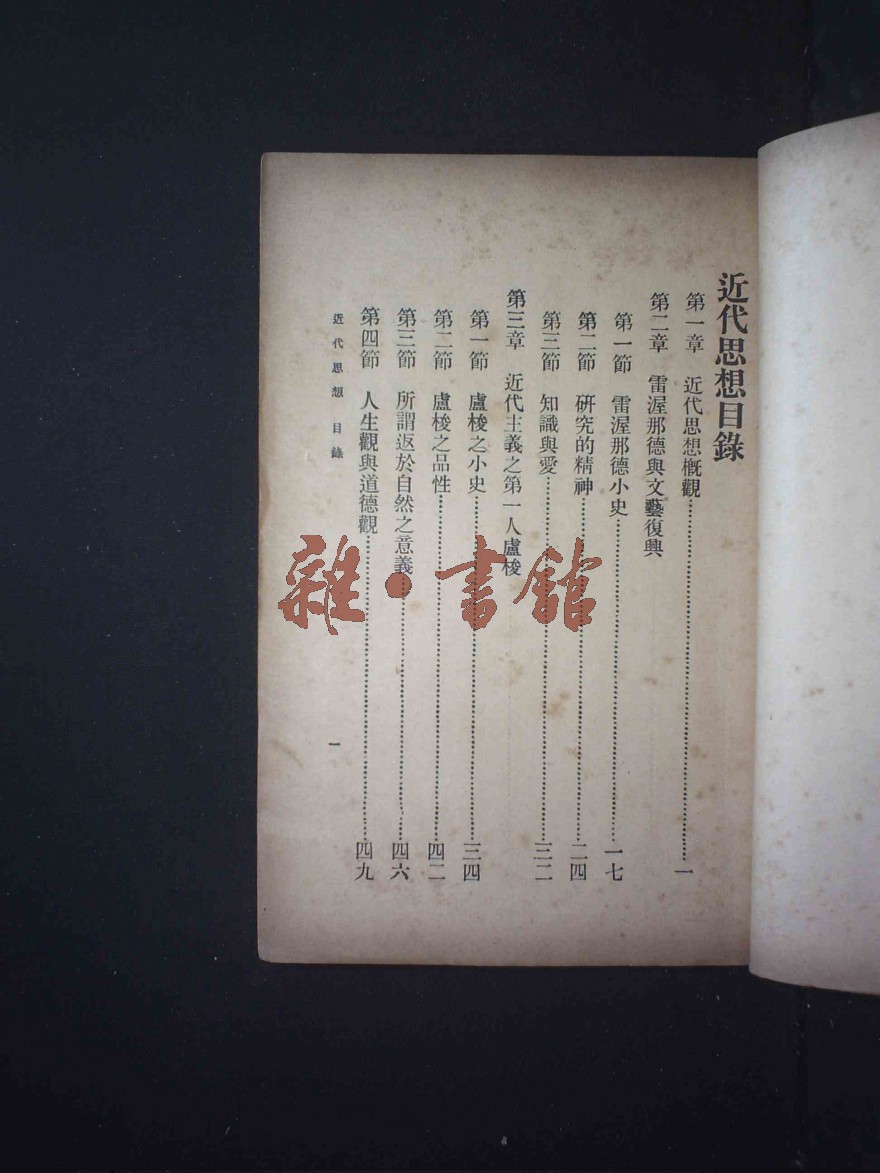 近代思想目錄
第一章 近代思想概觀……一
第二章 雷渥那德與文藝復興
第一節 雷渥那德小史……一七
第二節 研究的精神……二四
第三節 知識與愛……三二
第三章 近代主義之第一人盧梭
第一節 盧梭之小史……三四
第二節 盧梭之品性……四二
第三節 所謂返於自然之意義……四六
第四節 人生觀與道德觀……四九
近代思想 目錄
一
雜·書館